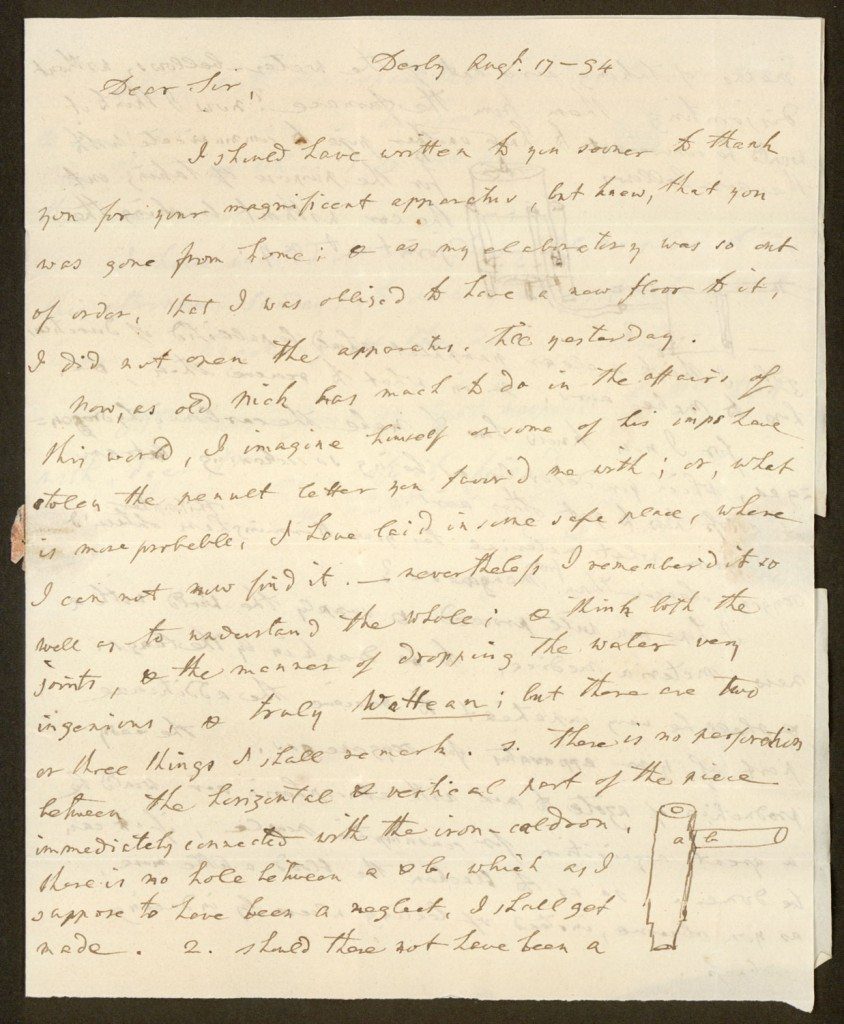 Derby Augt. 17 - 94
Dear Sir,
I should have written to you sooner to thank
you for your magnificent apparatus, but knew, that you
was gone from home; & as my elaboratory was so out
of order, that I was obliged to have a new floor to it,
I did not open the apparatus. till yesterday.
Now, as old Nick has much to do in the affairs of
this world, I imagine himself or some of his imps have
stolen the penult letter you favor'd me with; or, what
is more probable, I have laid in some safe place, where
I can not now find it. — nevertheless I remember'd it so
well as to understand the whole; & think both the
joints, & the manner of dropping the water very
ingenious, & truly Wattean; but there are two
or three things I shall remark. 1. There is no perforation
between the horizontal & vertical part of the piece
immediately connected with the iron-caldron,
there is no hole between a & b, which as I
suppose to have been a neglect, I shall get
made. 2. should there not have been a
a b